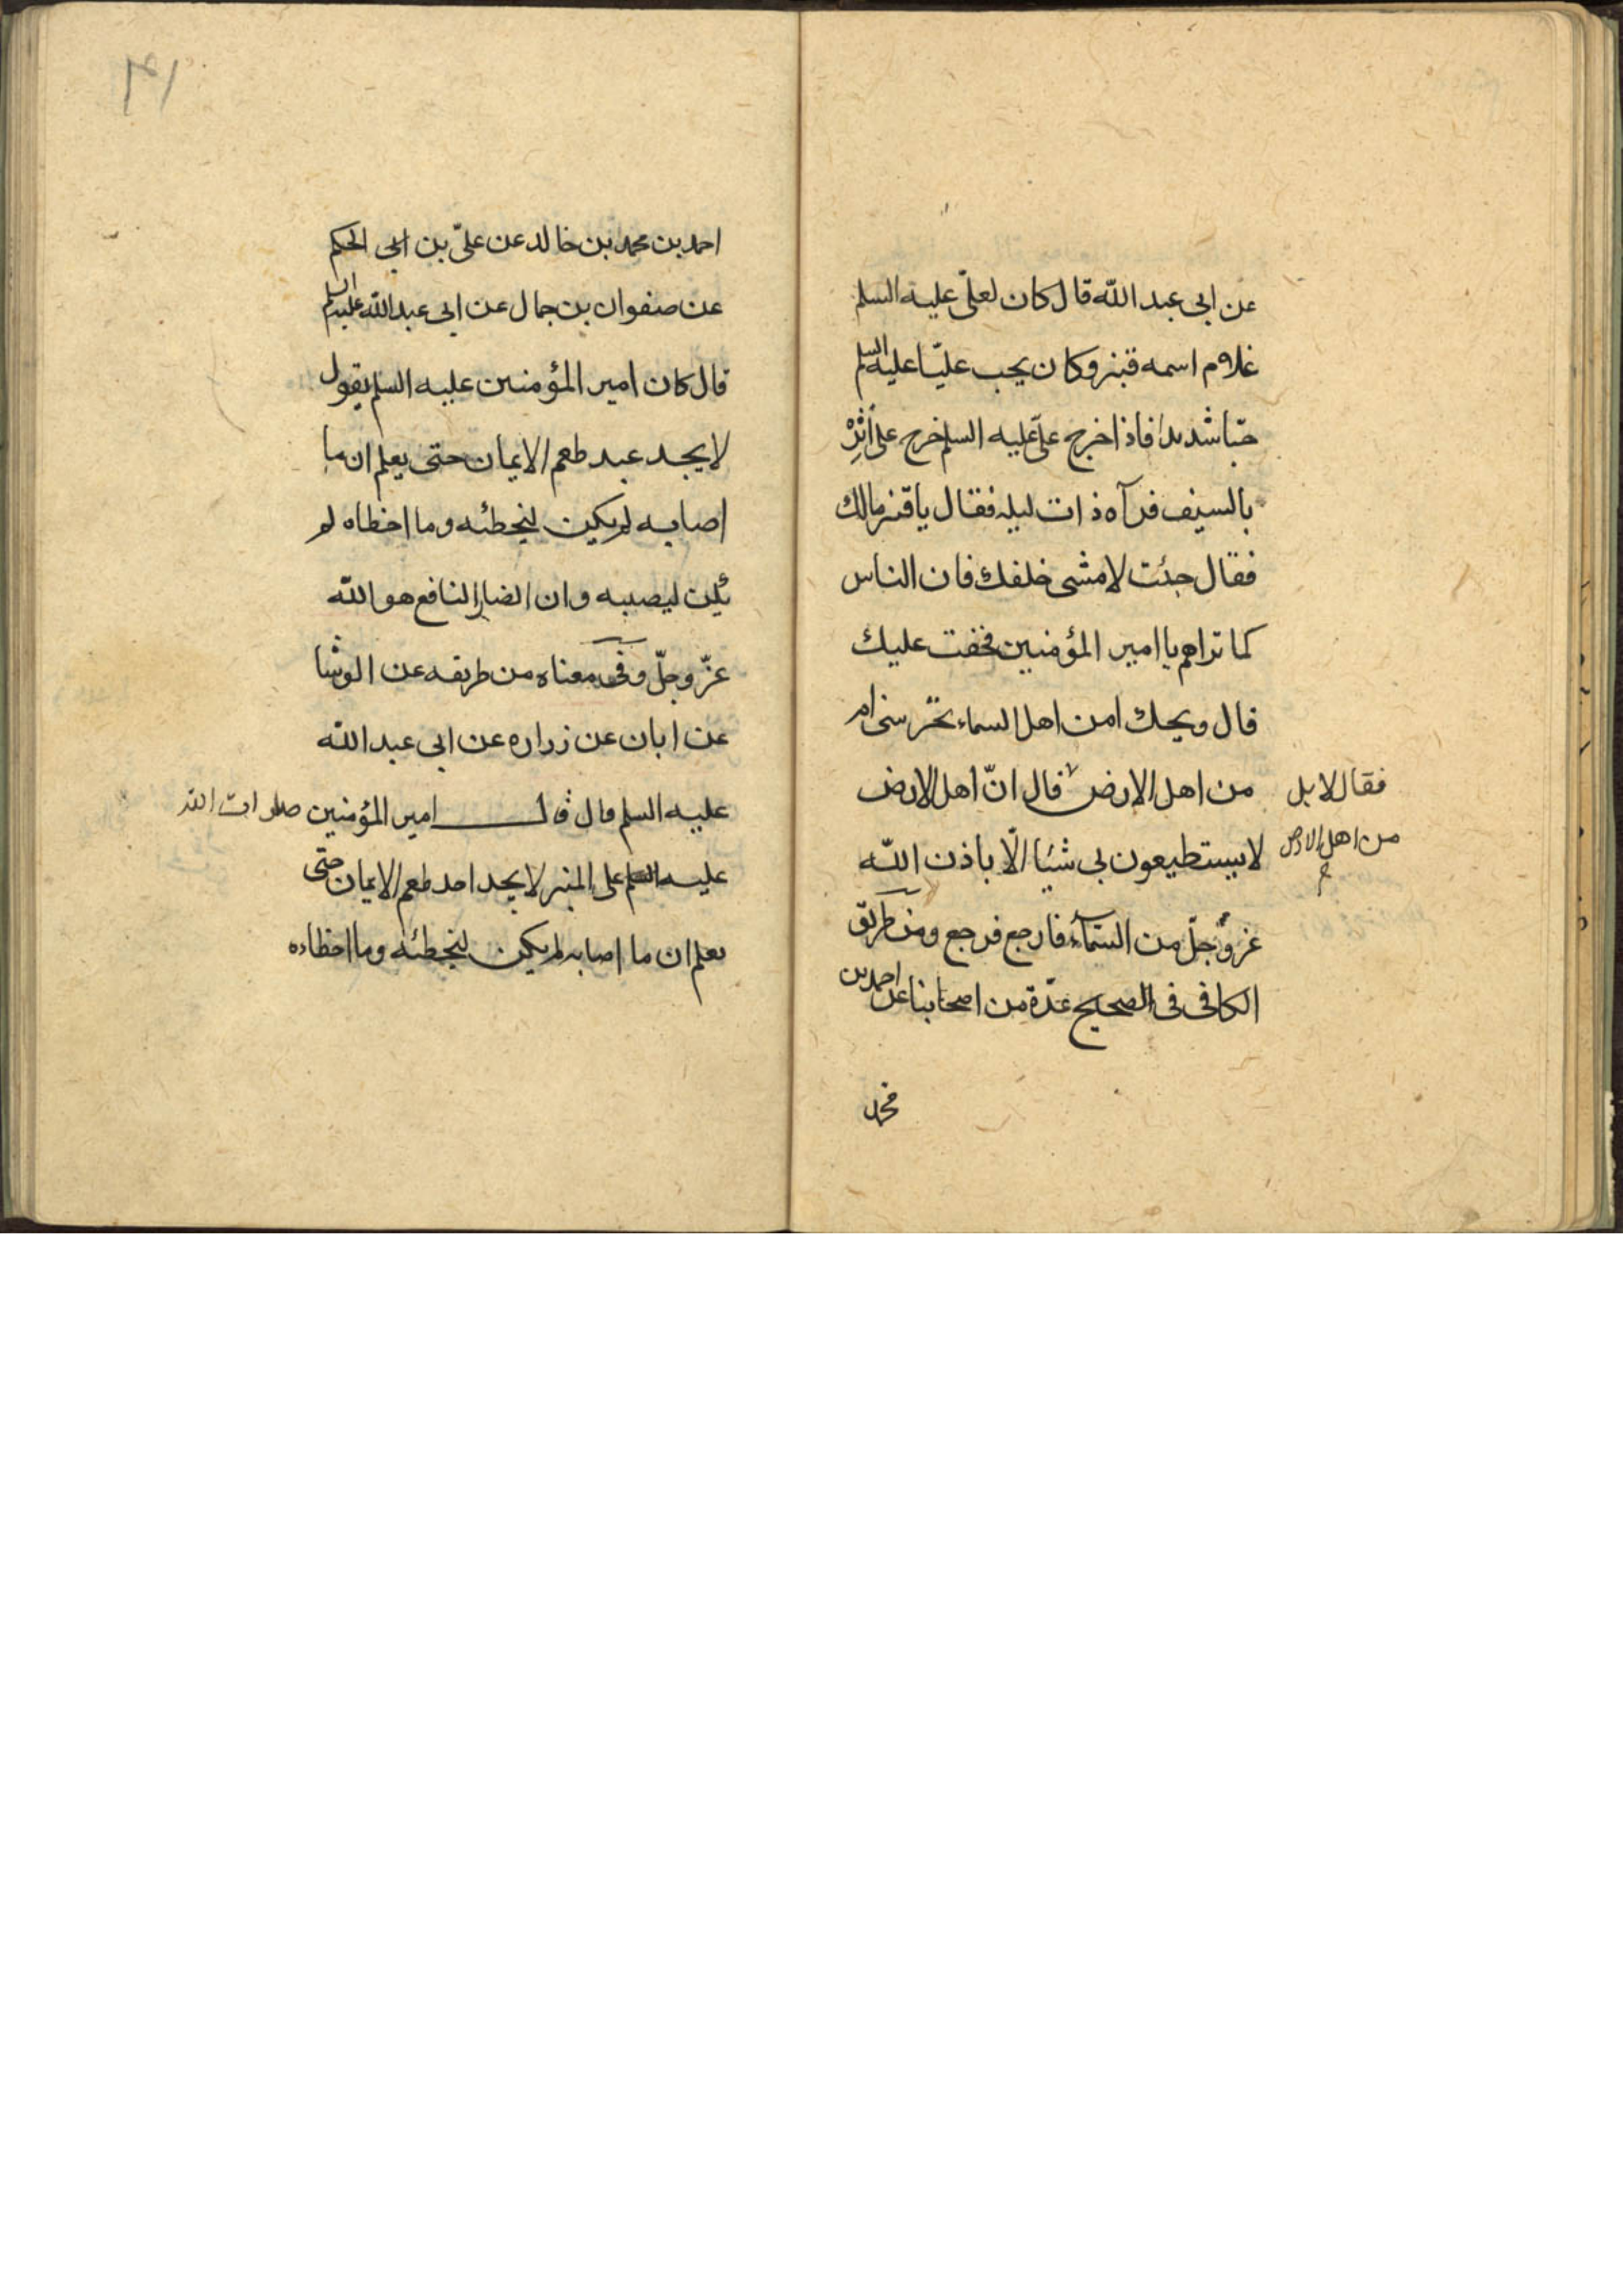 عن ابى عبد الله قال كان لعلىّ عليه السلم
غلام اسمه قنبر وكان يحب عليّا عليه السلم
حبّا شديدا فاذا خرج علىّ عليه السلم خرج على أثَرِه
بالسيف فرآه ذات ليله فقال يا قنبر مالك
فقال جئت لامشى خلفك فان الناس
كما تراهم يا امير المؤمنين فخفت عليك
قال ويحك امن اهل السماء تحرسنى ام
من اهل الارض قال انّ اهل الارض
فقال لا بل
من اهل الارض
لا يستطيعون بى شيئا الّا باذن الله
عز وجلّ من السمآء فارجع فرجع ومن طريق
الكافى فى الصحيح عدّة من اصحابنا عن احمد بن
محمد
۳۱
احمد بن محمد بن خالد عن علىّ بن ابى الحكم
عن صفوان بن جمال عن ابى عبد الله عليه السلم
قال كان امير المؤمنين عليه السلم يقول
لا يجد عبد طعم الايمان حتى يعلم ان ما
اصابه لم يكن ليخطئه وما اخطاه لم
يكن ليصيبه وان الضار النافع هو الله
عزّ وجلّ وفى معناه من طريقه عن الوشا
عن ابان عن زراره عن ابى عبد الله
عليه السلم قال قال امير المؤمنين صلوات الله
عليه على المنبر لا يجد احد طعم الايمان حتى
يعلم ان ما اصابه لم يكن ليخطئه وما اخطاه